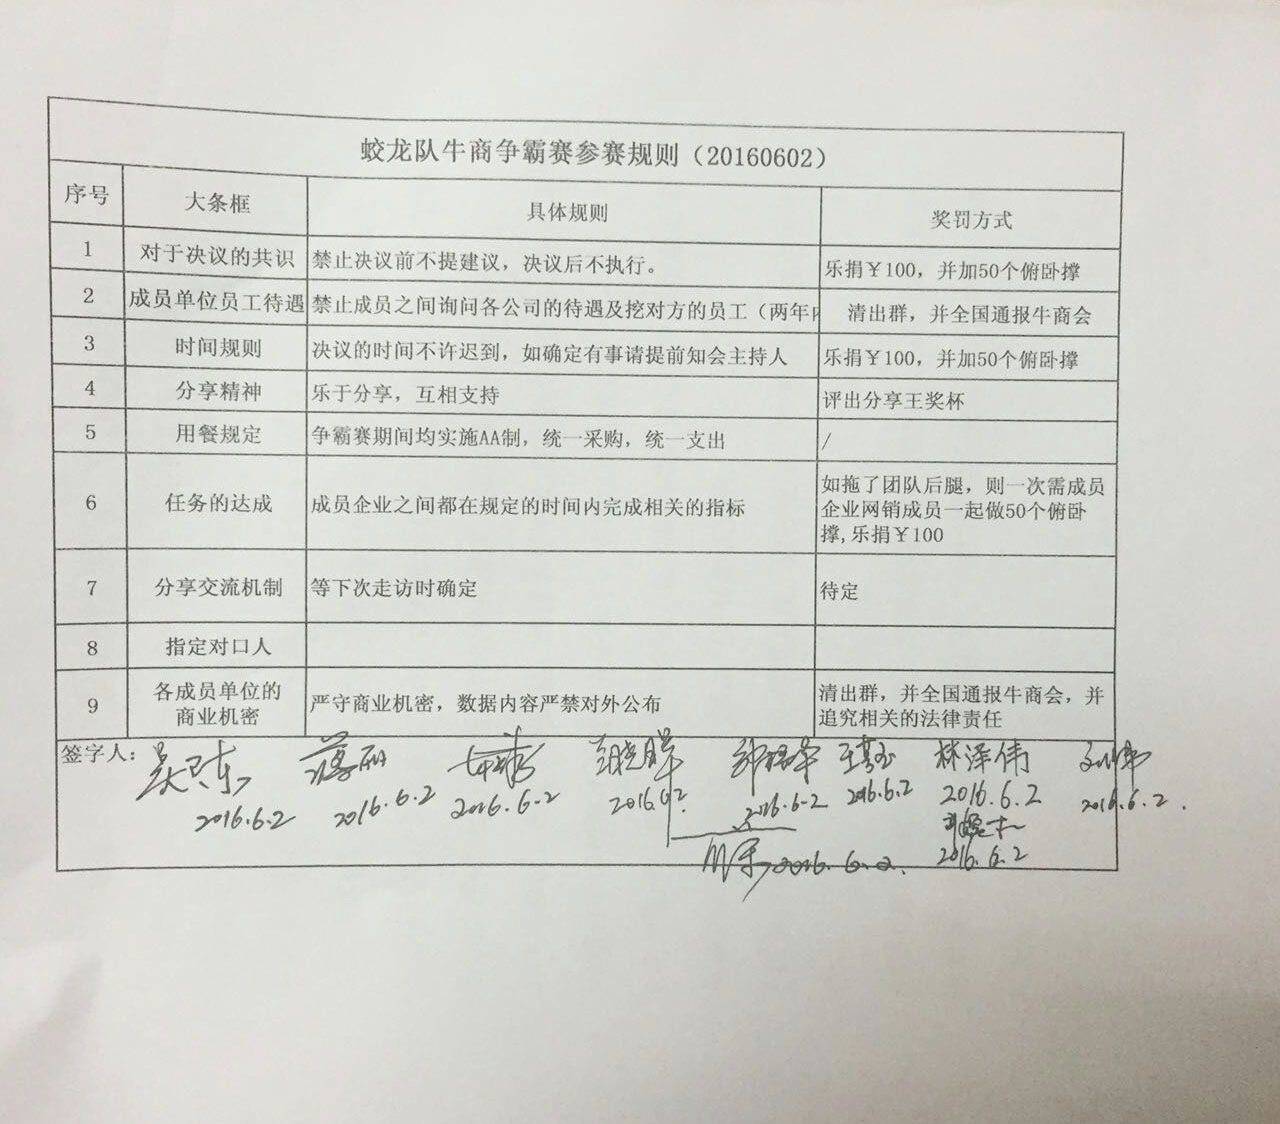 蛟龙队牛商争霸赛参赛规则（20160602）
序号 大条框 具体规则 奖罚方式
1 对于决议的共识 禁止决议前不提建议，决议后不执行。 乐捐￥100，并加50个俯卧撑
2 成员单位员工待遇 禁止成员之间询问各公司的待遇及挖对方的员工（两年内 清出群，并全国通报牛商会
3 时间规则 决议的时间不许迟到，如确定有事请提前知会主持人 乐捐￥100，并加50个俯卧撑
4 分享精神 乐于分享，互相支持 评出分享王奖杯
5 用餐规定 争霸赛期间均实施AA制，统一采购，统一支出 /
6 任务的达成 成员企业之间都在规定的时间内完成相关的指标 如拖了团队后腿，则一次需成员
企业网销成员一起做50个俯卧
撑,乐捐￥100
7 分享交流机制 等下次走访时确定 待定
8 指定对口人
9 各成员单位的
商业机密 严守商业机密，数据内容严禁对外公布 清出群，并全国通报牛商会，并
追究相关的法律责任
签字人：
林泽伟
2016.6.2 2016.6.2 2016.6.2 2016.6.2 2016.6.2 2016.6.2 2016.6.2 2016.6.2.
2016.6.2. 2016.6.2